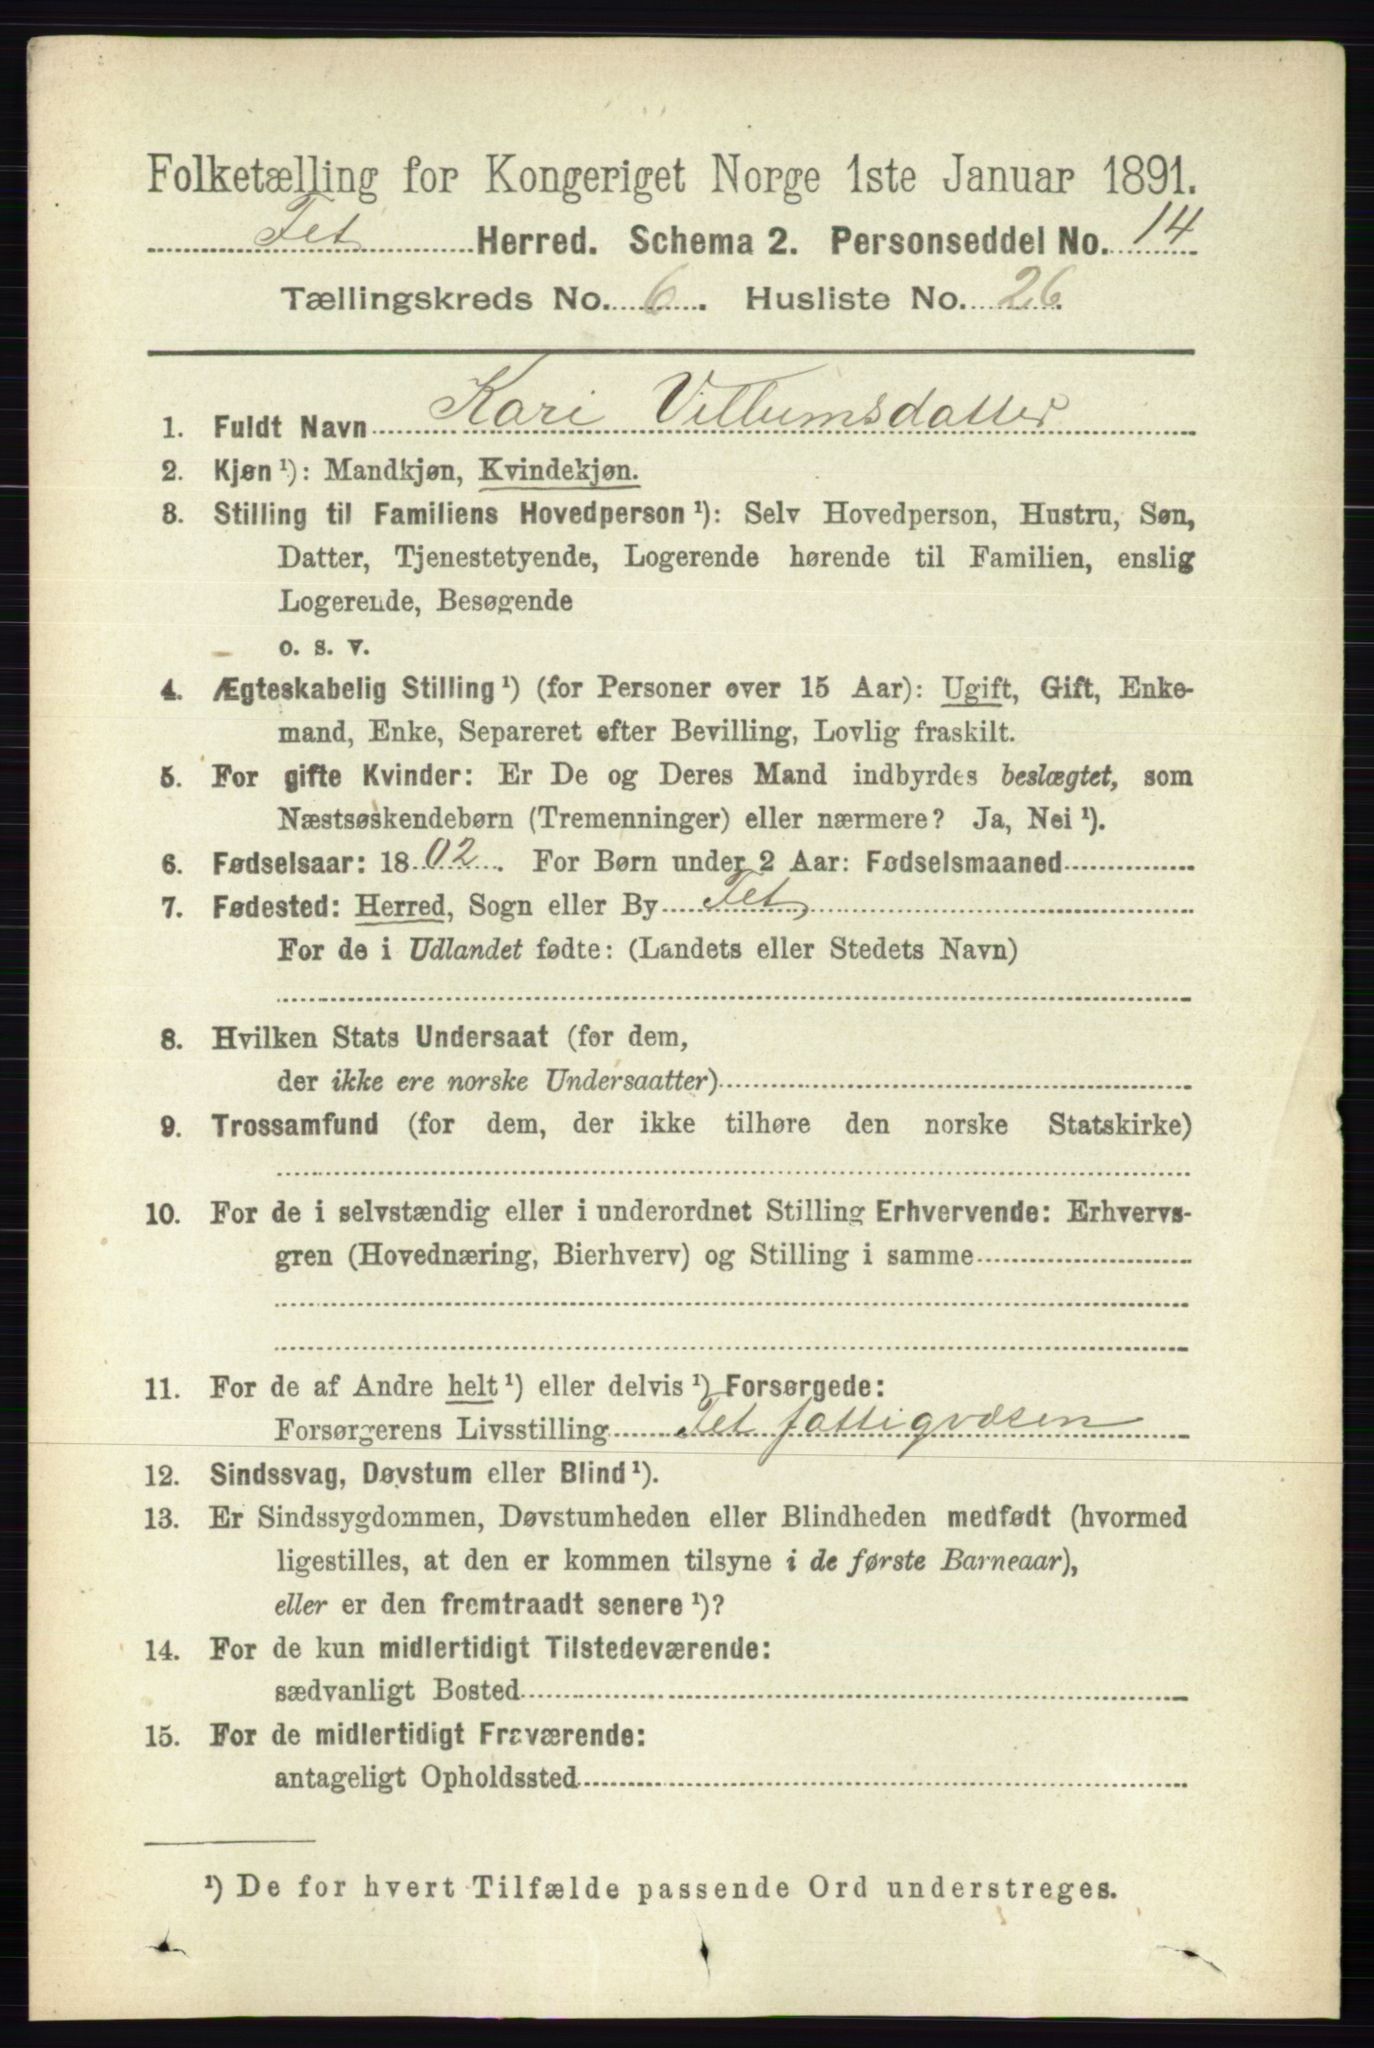 Folketælling for Kongeriget Norge 1ste Januar 1891.
Fet Herred. Schema 2. Personseddel No. 14
Tællingskreds No. 6. Husliste No. 26
1. Fuldt Navn Kari Villumsdatter
2. Kjøn ¹): Mandkjøn, Kvindekjøn.
3. Stilling til Familiens Hovedperson ¹): Selv Hovedperson, Hustru, Søn,
Datter, Tjenestetyende, Logerende hørende til Familien, enslig
Logerende, Besøgende
o. s. v.
4. Ægteskabelig Stilling ¹) (for Personer over 15 Aar): Ugift, Gift, Enke-
mand, Enke, Separeret efter Bevilling, Lovlig fraskilt.
5. For gifte Kvinder: Er De og Deres Mand indbyrdes beslægtet, som
Næstsøskendebørn (Tremenninger) eller nærmere? Ja, Nei ¹).
6. Fødselsaar: 1802. For Børn under 2 Aar: Fødselsmaaned
7. Fødested: Herred, Sogn eller By Fet
For de i Udlandet fødte: (Landets eller Stedets Navn)
8. Hvilken Stats Undersaat (for dem,
der ikke ere norske Undersaatter)
9. Trossamfund (for dem, der ikke tilhøre den norske Statskirke)
10. For de i selvstændig eller i underordnet Stilling Erhvervende: Erhvervs-
gren (Hovednæring, Bierhverv) og Stilling i samme
11. For de af Andre helt ¹) eller delvis ¹) Forsørgede:
Forsørgerens Livsstilling Fet fattigvæsen
12. Sindssvag, Døvstum eller Blind ¹).
13. Er Sindssygdommen, Døvstumheden eller Blindheden medfødt (hvormed
ligestilles, at den er kommen tilsyne i de første Barneaar),
eller er den fremtraadt senere ¹)?
14. For de kun midlertidigt Tilstedeværende:
sædvanligt Bosted
15. For de midlertidigt Fraværende:
antageligt Opholdssted
¹) De for hvert Tilfælde passende Ord understreges.